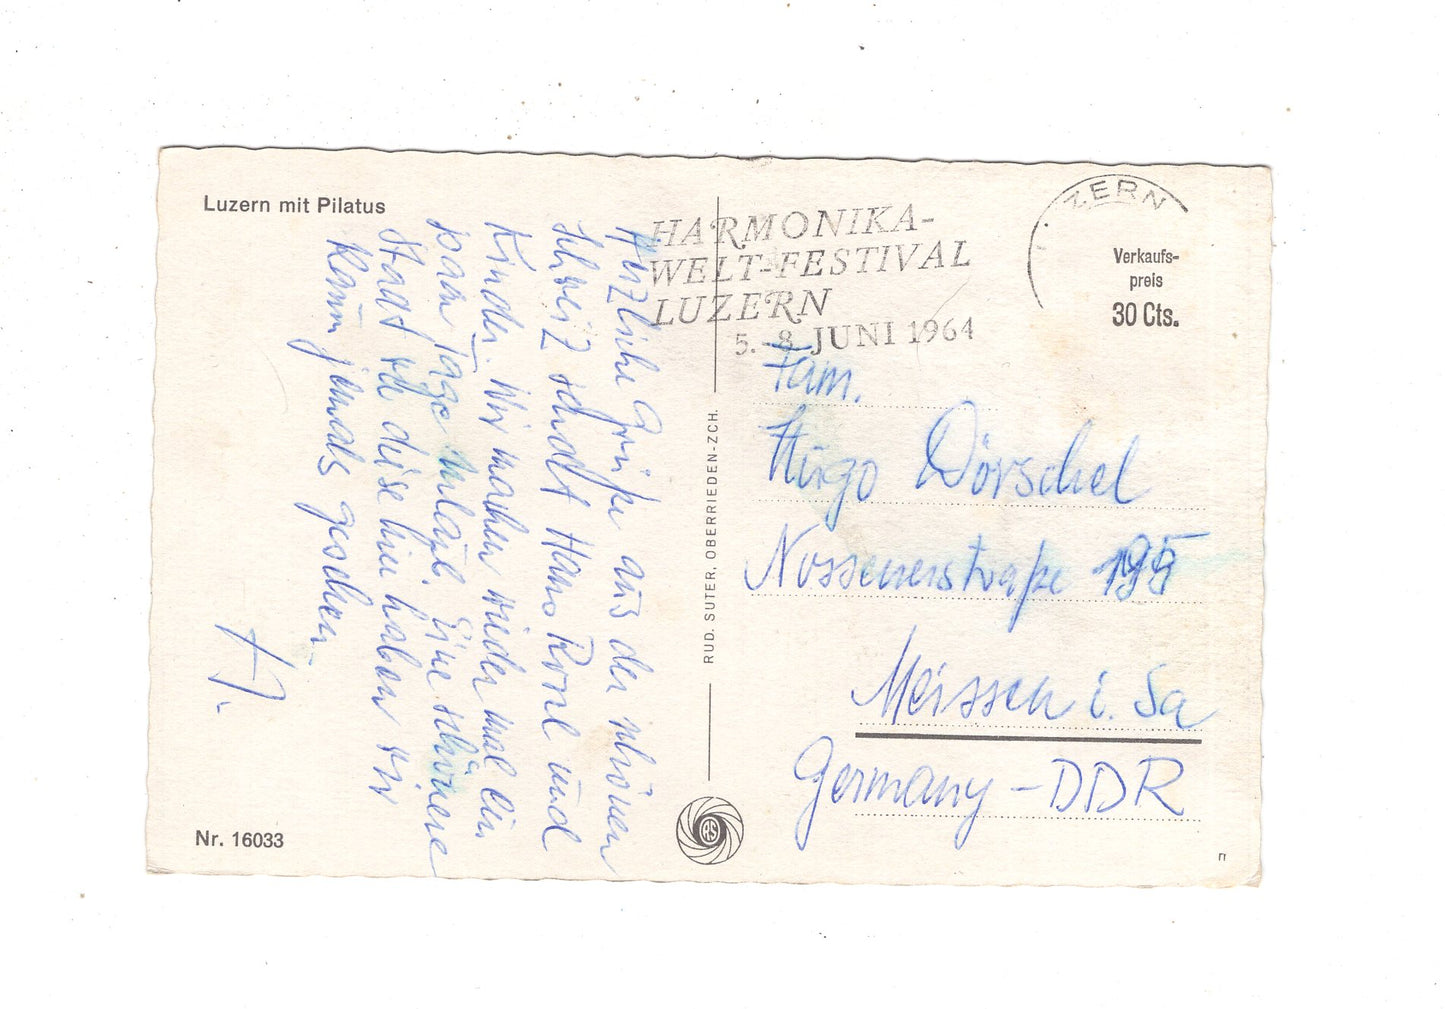 Luzern mit Pilatus
Herzliche Grüße aus der schönen
Schweiz sendet Hans Rosel und
Kinder. Wir machen wieder mal ein
paar Tage Urlaub. Eine schönere
Stadt als diese hier haben wir
kaum jemals gesehen.
Nr. 16033
RUD. SUTER, OBERRIEDEN-ZCH.
RS
HARMONIKA-
WELT-FESTIVAL
LUZERN
5.-8. JUNI 1964
ZERN
Verkaufs-
preis
30 Cts.
Fam.
Hugo Dörschel
Nossenerstraße 195
Meissen i. Sa
Germany - DDR